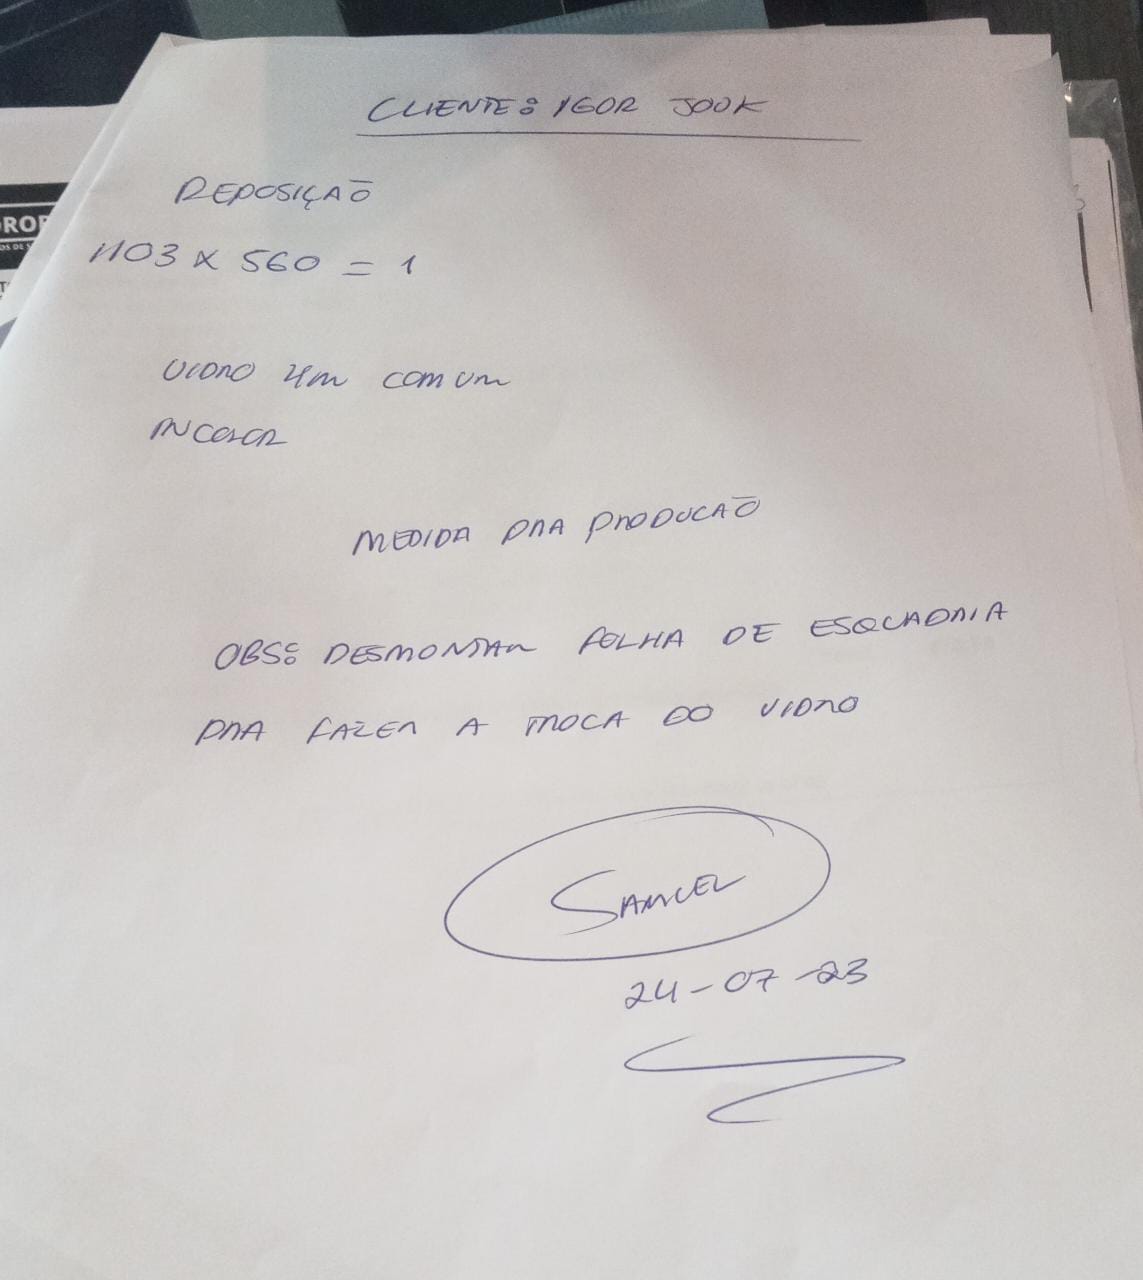 CLIENTE: IGOR JOOK
REPOSIÇÃO
1103 X 560 = 1
VIDRO 4m COMUM
INCOLOR
MEDIDA PRA PRODUCAÕ
OBS: DESMONTAR FOLHA DE ESQUADRIA
PRA FAZER A TROCA DO VIDRO
SAMUEL
24-07-23